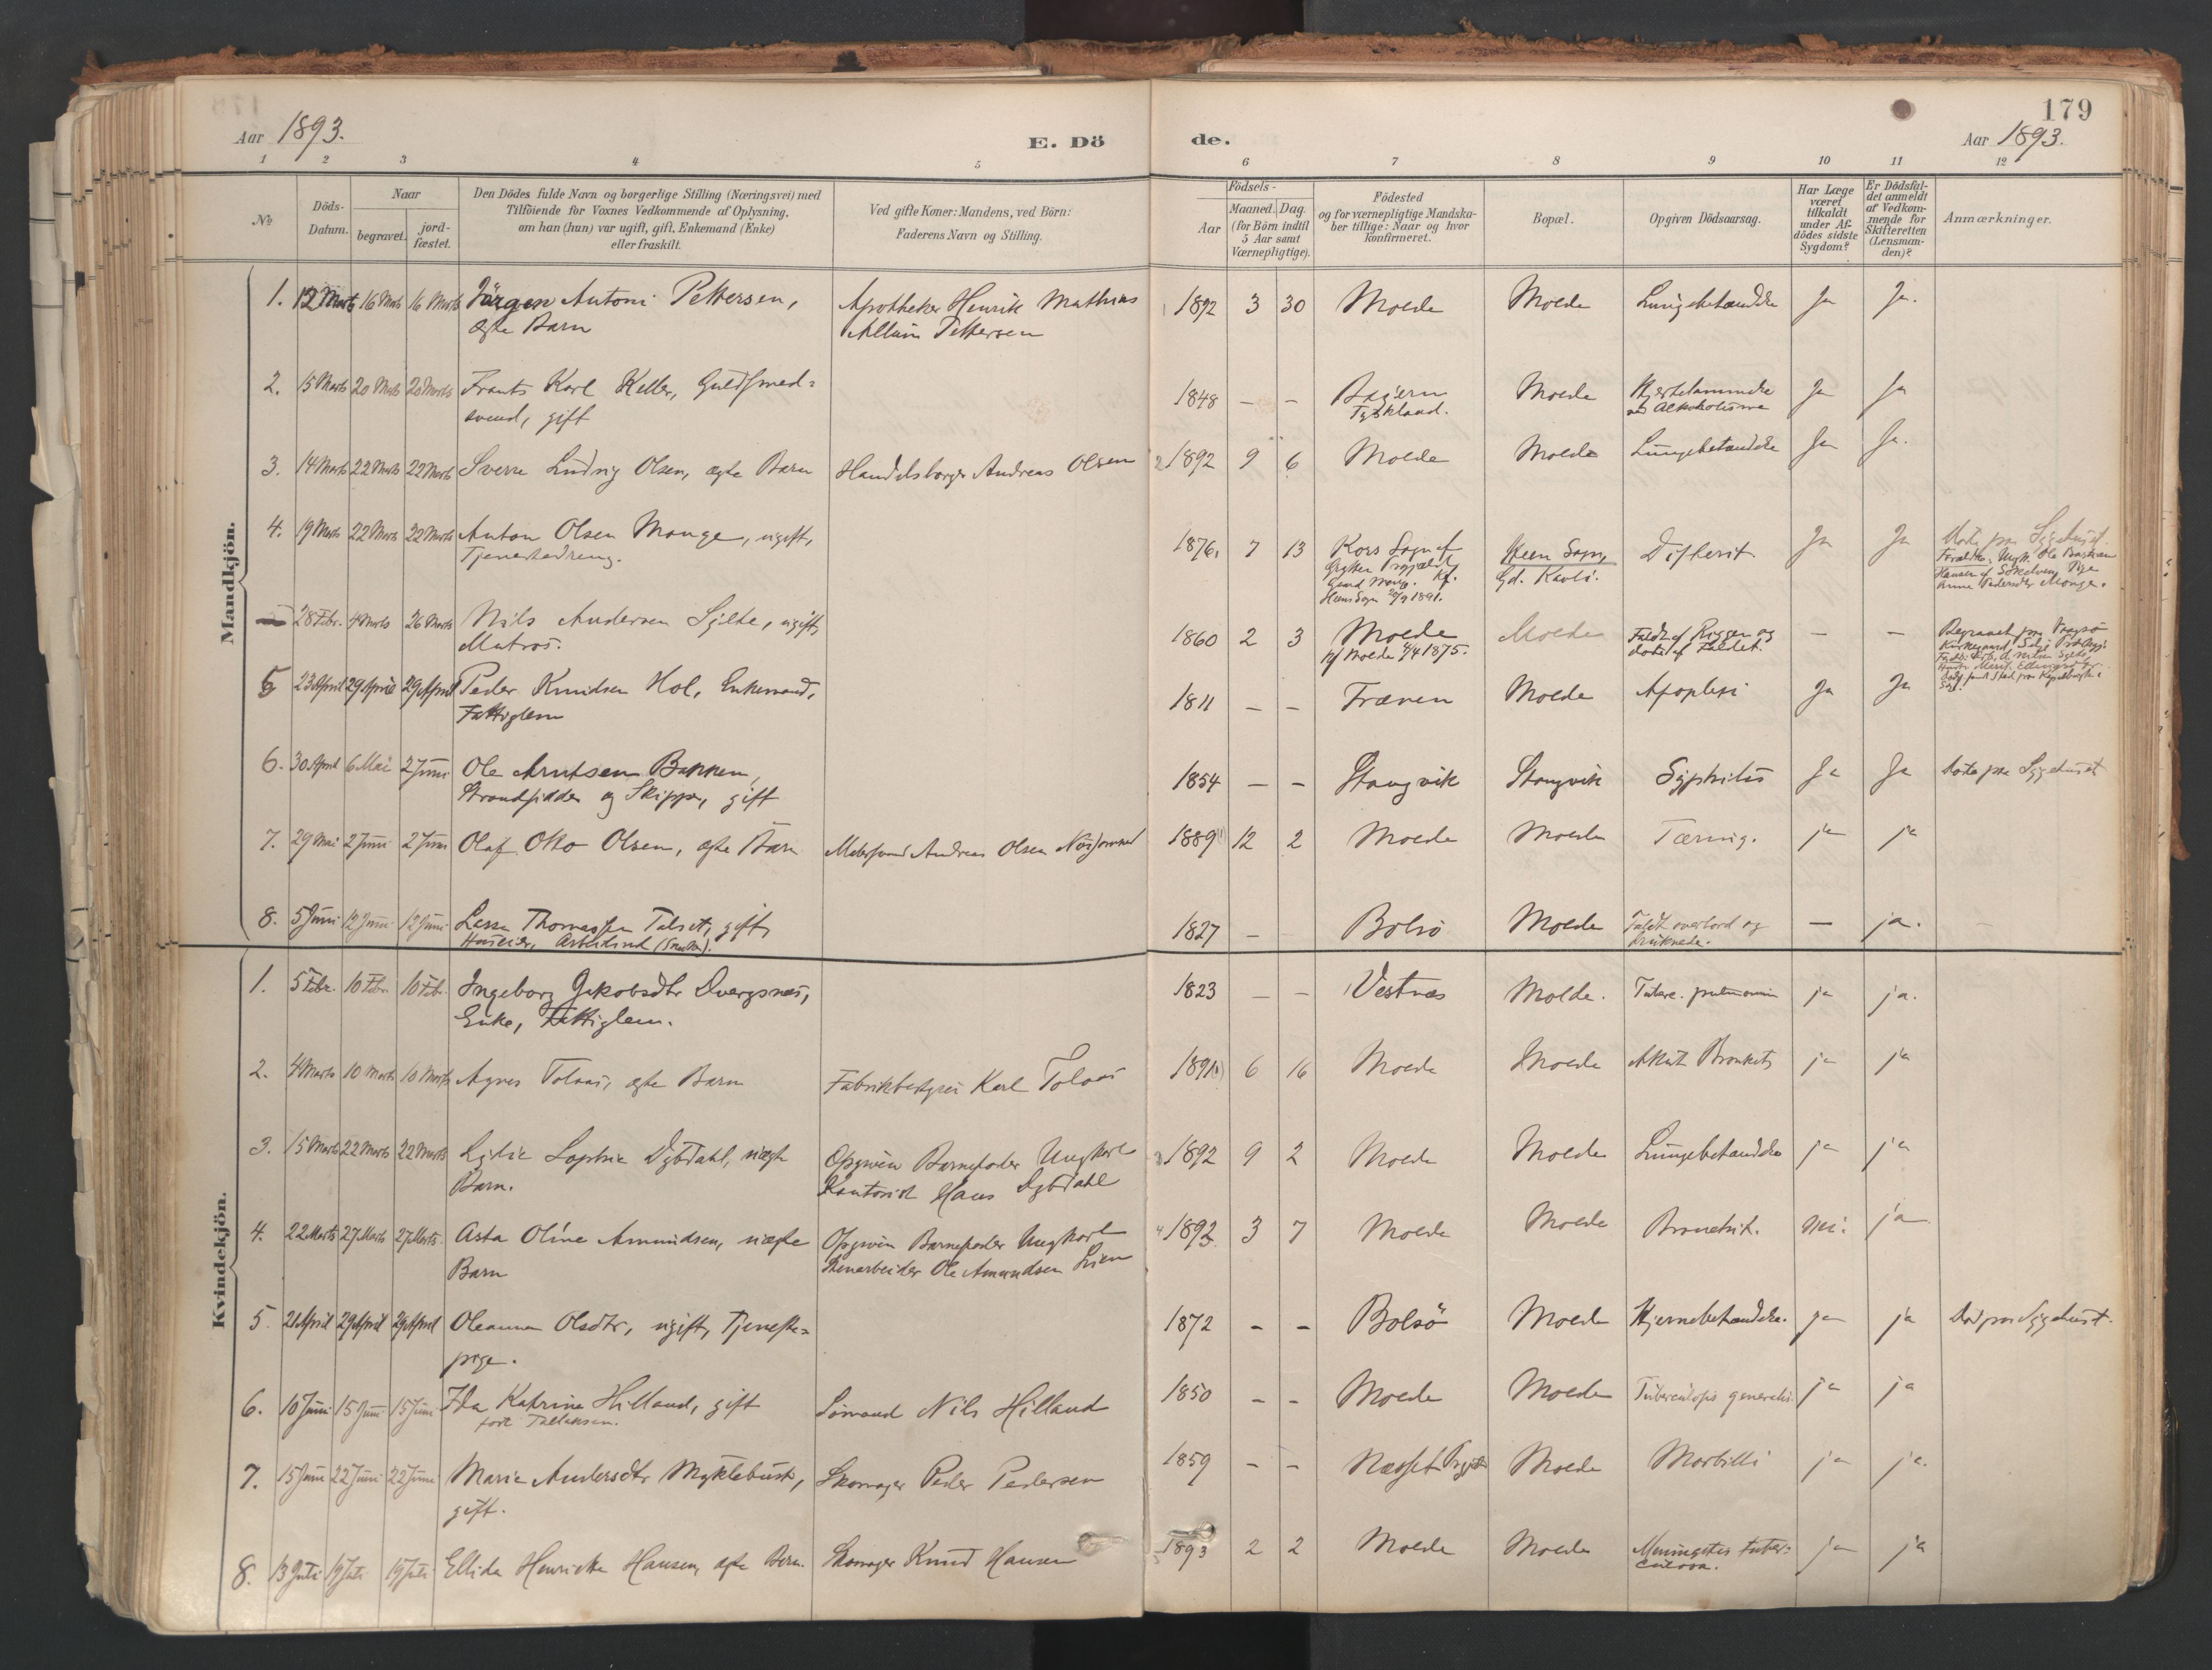 179
Aar 1893.
E. Dö
de.
Aar 1893.
1 2 3 4 5 6 7 8 9 10 11 12
No
Döds-
Datum.
Naar
begravet.
jord-
fæstet.
Den Dödes fulde Navn og borgerlige Stilling (Næringsvei) med
Tilföiende for Voxnes Vedkommende af Oplysning,
om han (hun) var ugift, gift, Enkemand (Enke)
eller fraskilt.
Ved gifte Koner: Mandens, ved Börn:
Faderens Navn og Stilling.
Födsels-
Aar
Maaned. Dag.
(for Börn indtil
5 Aar samt
Værnepligtige).
Födested
og for værnepligtige Mandska-
ber tillige: Naar og hvor
konfirmeret.
Bopæl.
Opgiven Dödsaarsag.
Har Læge
været
tilkaldt
under Af-
dödes sidste
Sygdom?
Er Dödsfal-
det anmeldt
af Vedkom-
mende for
Skifteretten
(Lensman-
den)?
Anmærkninger.
Mandkjön.
1. 12 Marts 16 Marts 16 Marts Jörgen Antoni Pettersen, Apotheker Henrik Mathias 1892 3 30 Molde Molde Lungebetændelse Ja Ja.
ægte Barn Pettersen
2. 15 Marts 20 Marts 20 Marts Frants Karl Keller, Guldsmed- 1848 – – Bayern Molde Ja Ja
svend, gift Tyskland. Alkoholisme
3. 14 Marts 22 Marts 22 Marts Sverre Ludvig Olsen, ægte Barn Handelsborger Andreas Olsen 1892 9 6 Molde Molde Lungebetændelse Ja Ja.
4. 19 Marts 22 Marts 22 Marts Anton Olsen Monge, ugift, 1876 7 13 Kors Sogn af Veen Sogn, Difterit Ja Ja Döde paa Sygehuset.
Tjenestedreng. Grytten Gd.
– 28 Febr. 4 Marts 26 Marts Nils Andersen Sylte, ugift, 1860 2 3 Molde Molde Faldt af Riggen og – – Begravet paa
Matros. Molde 4/4 1875. döde af Faldet. Kirkegaard,
5 23 April 29 April 29 April Peder Knudsen Hol, Enkemand, 1811 – – Frænen Molde Apoplexi Ja Ja
Fattiglem
6. 30 April 6 Mai 2 Juni Ole Arntsen Bakken, 1854 – – Stangvik Stangvik Syphilis Ja Ja Döde paa Sygehuset
Strandsidder og Skipper, gift
7. 29 Mai 2 Juni 2 Juni Olaf Otto Olsen, ægte Barn Malersvend Andreas Olsen 1889 12 2 Molde Molde Tæring. ja ja
8. 5 Juni 12 Juni 12 Juni Lasse Thomassen Talset, gift, 1827 – Bolsö Molde Faldt overbord og – ja.
Huseier, druknede.
Kvindekjön.
1. 5 Febr. 10 Febr. 10 Febr. Ingeborg Jakobsdtr Dvergsnæs, 1823 – – Vestnæs Molde. Tuberc. pulmonum ja ja.
Enke, Fattiglem.
2. 4 Marts 10 Marts 10 Marts Agnes Tolaas, ægte Barn Fabrikbestyrer Karl Tolaas 1891 6 16 Molde Molde Akut Bronkit ja ja
3. 15 Marts 22 Marts 22 Marts Sophie Dybdahl, uægte Opgiven Barnefader Ungkarl 1892 9 2 Molde Molde Lungebetændelse ja ja
Barn. Kontorist Hans Dybdahl
4. 22 Marts 27 Marts 27 Marts Asta Oline Amundsen, uægte Opgiven Barnefader Ungkarl 1892 3 7 Molde Molde Bronchit. nei. ja
Barn Stenarbeider Ole Amundsen Lien
5. 21 April 29 April 29 April Oleanna Olsdtr, ugift, Tjeneste- 1872 – – Bolsö Molde Hjernebetændelse. ja ja Död paa Sygehuset.
pige.
6. 10 Juni 15 Juni 15 Juni Ida Katrine Hilland, gift Sömand Nils Hilland 1850 – – Molde Molde Tuberculosis generalis. ja ja
född Tallaksen.
7. 15 Juni 22 Juni 22 Juni Marie Andersdtr Myklebust, Skomager Peder Pedersen 1859 – – Næsset Molde Morbilli ja ja.
gift.
8. 13 Juli 19 Juli 19 Juli Ellida Henrikke Hansen, ægte Barn. Skomager Knud Hansen 1893 2 2 Molde Molde Meningitis tuber- ja ja
culosa.